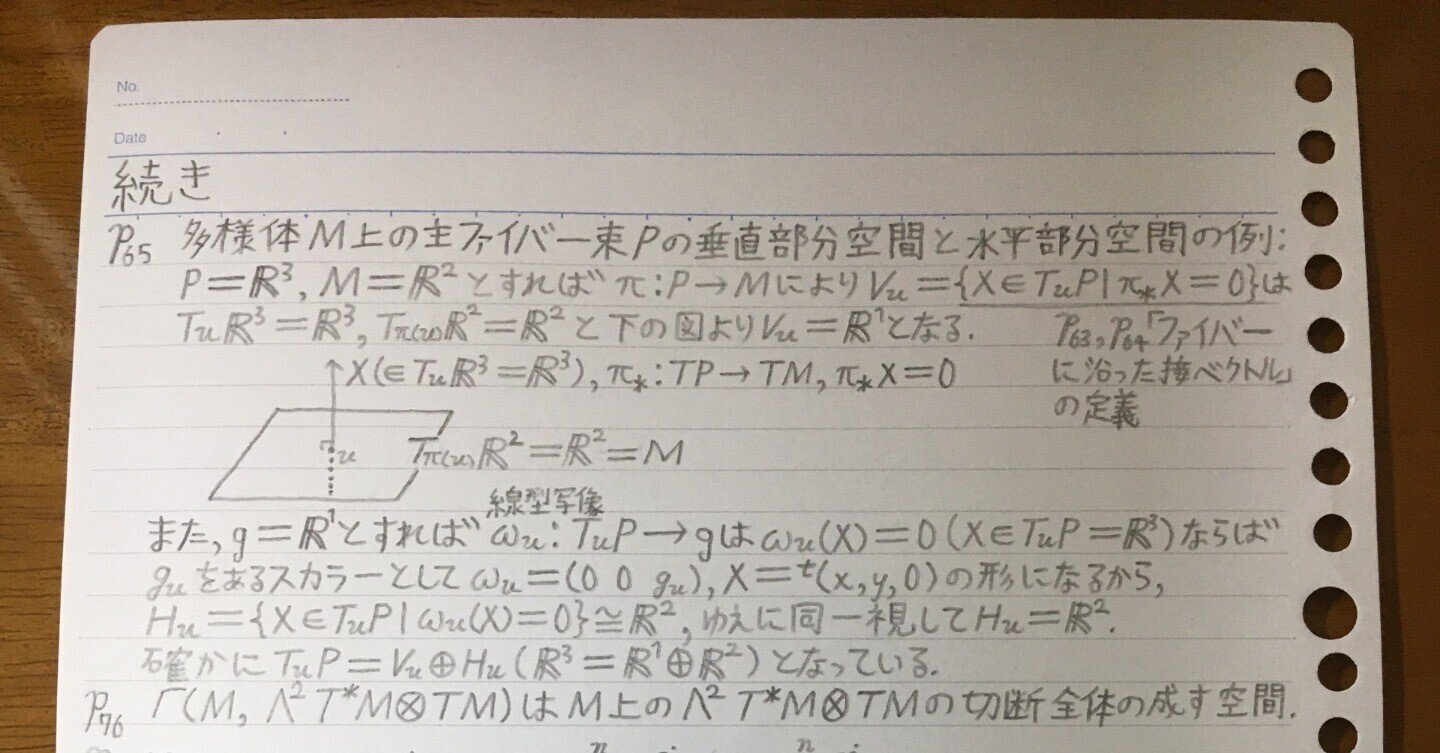 No.
Date
続き
P65 多様体M上の主ファイバー束Pの垂直部分空間と水平部分空間の例:
P=ℝ³, M=ℝ²とすればπ:P→MによりVu={X∈TuP|π*X=0}は
Tuℝ³=ℝ³, Tπ(u)ℝ²=ℝ²と下の図よりVu=ℝ¹となる.
P63, P64「ファイバー
に沿った接ベクトル」
の定義
X(∈Tuℝ³=ℝ³), π*:TP→TM, π*X=0
u
Tπ(u)ℝ²=ℝ²=M
線型写像
また, g=ℝ¹とすればωu:TuP→gはωu(X)=0(X∈TuP=ℝ³)ならば
guをあるスカラーとしてωu=(0 0 gu), X=ᵗ(x,y,0)の形になるから,
Hu={X∈TuP|ωu(X)=0}≅ℝ², ゆえに同一視してHu=ℝ².
確かにTuP=Vu⊕Hu(ℝ³=ℝ¹⊕ℝ²)となっている.
P76 Γ(M, Λ²T*M⊗TM)はM上のΛ²T*M⊗TMの切断全体の成す空間.